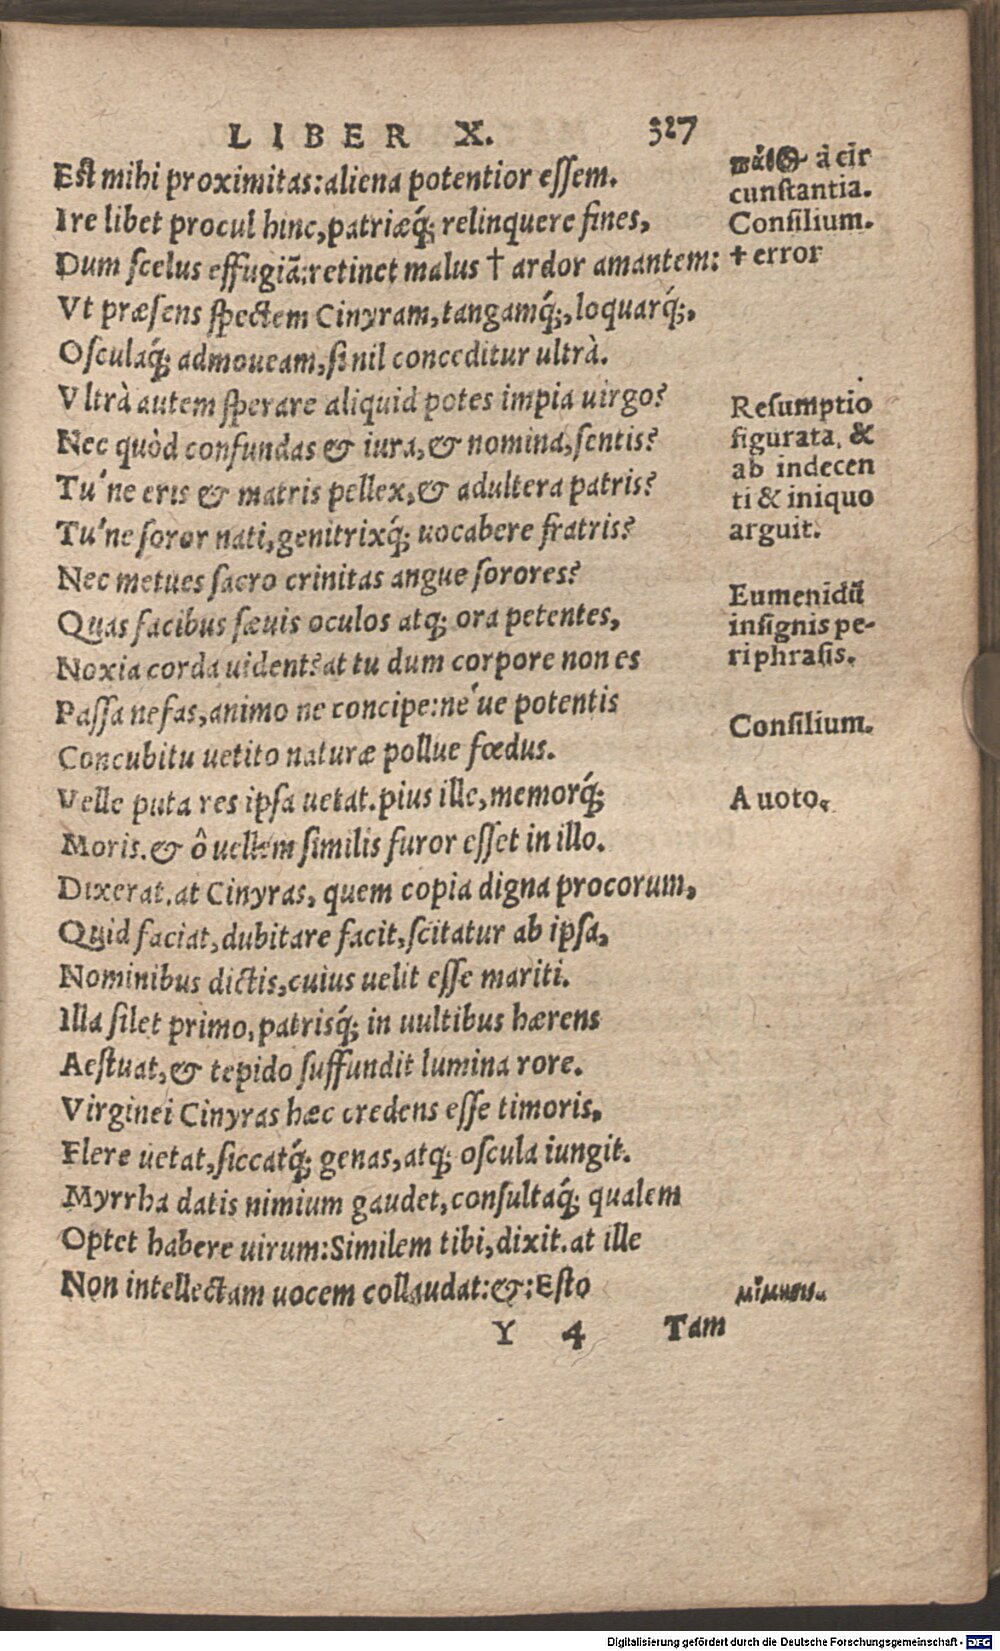 LIBER X. 327
Est mihi proximitas:aliena potentior essem.
Ire libet procul hinc,patriæq́; relinquere fines,
Dum scelus effugiã:retinet malus † ardor amantem:
Vt præsens spectem Cinyram,tangamq́;,loquarq́;,
Osculaq́; admoueam,si nil conceditur ultrà.
Vltrà autem sperare aliquid potes impia uirgo?
Nec quòd confundas & iura,& nomina,sentis?
Tu'ne eris & matris pellex,& adultera patris?
Tu'ne soror nati,genitrixq́; uocabere fratris?
Nec metues sacro crinitas angue sorores?
Quas facibus sæuis oculos atq; ora petentes,
Noxia corda uident?at tu dum corpore non es
Passa nefas,animo ne concipe:ne'ue potentis
Concubitu uetito naturæ pollue fœdus.
Velle puta res ipsa uetat.pius ille,memorq́;
Moris.& ô uellem similis furor esset in illo.
Dixerat.at Cinyras, quem copia digna procorum,
Quid faciat,dubitare facit,scitatur ab ipsa,
Nominibus dictis,cuius uelit esse mariti.
Illa silet primo,patrisq́; in uultibus hærens
Aestuat,& tepido suffundit lumina rore.
Virginei Cinyras hæc credens esse timoris,
Flere uetat,siccatq́; genas,atq; oscula iungit.
Myrrha datis nimium gaudet,consultaq́; qualem
Optet habere uirum:Similem tibi,dixit.at ille
Non intellectam uocem collaudat:&:Esto
Y 4 Tam
à cir
cunstantia.
Consilium.
† error
Resumptio
figurata, &
ab indecen
ti & iniquo
arguit.
Eumenidũ
insignis pe-
riphrasis.
Consilium.
A uoto.
μίμησις.
Digitalisierung gefördert durch die Deutsche Forschungsgemeinschaft - DFG